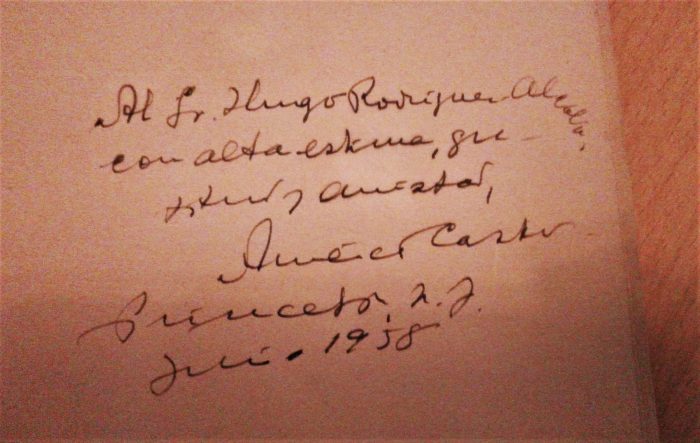 Al Sr. Hugo Rodríguez-Alcalá,
con alta estima, gra-
titud y amistad,
Américo Castro
Princeton, N. J.
Julio - 1958